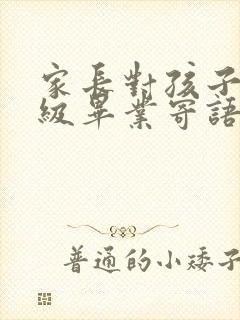 家長對孩子
級畢業寄語
普通的小矮子